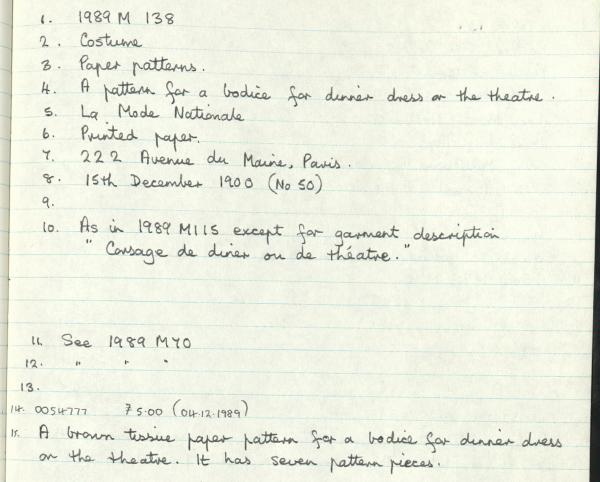 1. 1989 M 138
2. Costume
3. Paper patterns.
4. A pattern for a bodice for dinner dress or the theatre.
5. La Mode Nationale
6. Printed paper.
7. 222 Avenue du Maine, Paris.
8. 15th December 1900 (No 50)
9.
10. As in 1989 M115 except for garment description
" Corsage de diner ou de théatre."
11. See 1989 M70
12. " " "
13.
14. 0054777 75.00 (04.12.1989)
15. A brown tissue paper pattern for a bodice for dinner dress
or the theatre. It has seven pattern pieces.